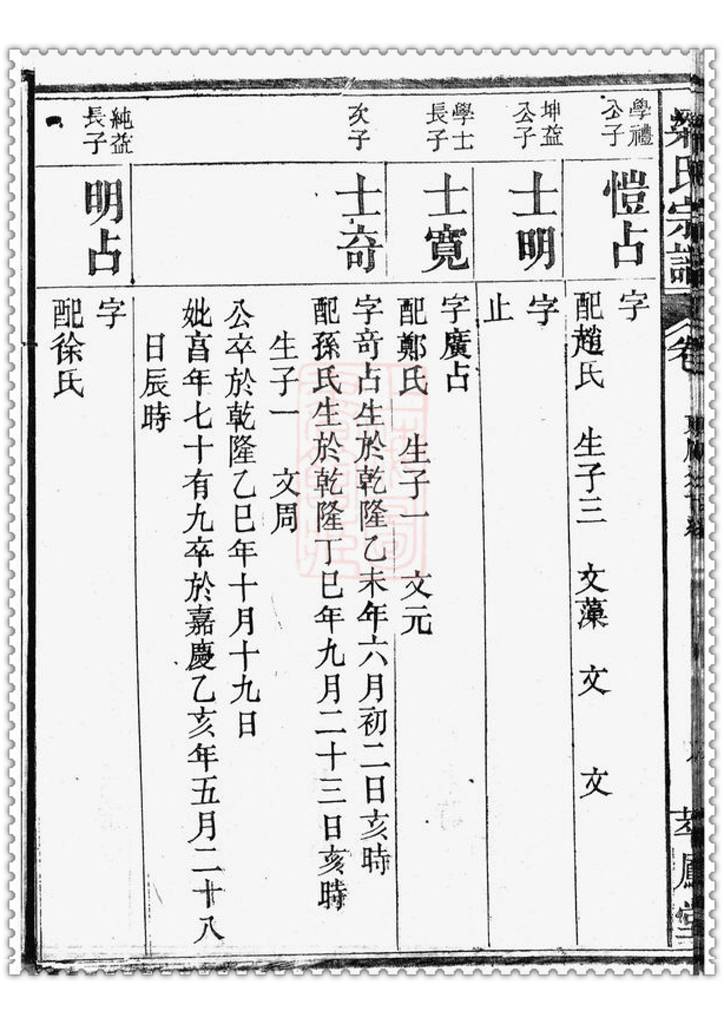 氏宗譜
卷
鳳堂
學禮
公子
愷占
字
配趙氏 生子三 文藻 文 文
坤益
公子
士明
字
止
學士
長子
士寬
字廣占
配鄭氏 生子一 文元
次子
士奇
字奇占生於乾隆乙未年六月初二日亥時
配孫氏生於乾隆丁巳年九月二十三日亥時
生子一 文周
公卒於乾隆乙巳年十月十九日
妣享年七十有九卒於嘉慶乙亥年五月二十八
日辰時
純益
長子
明占
字
配徐氏